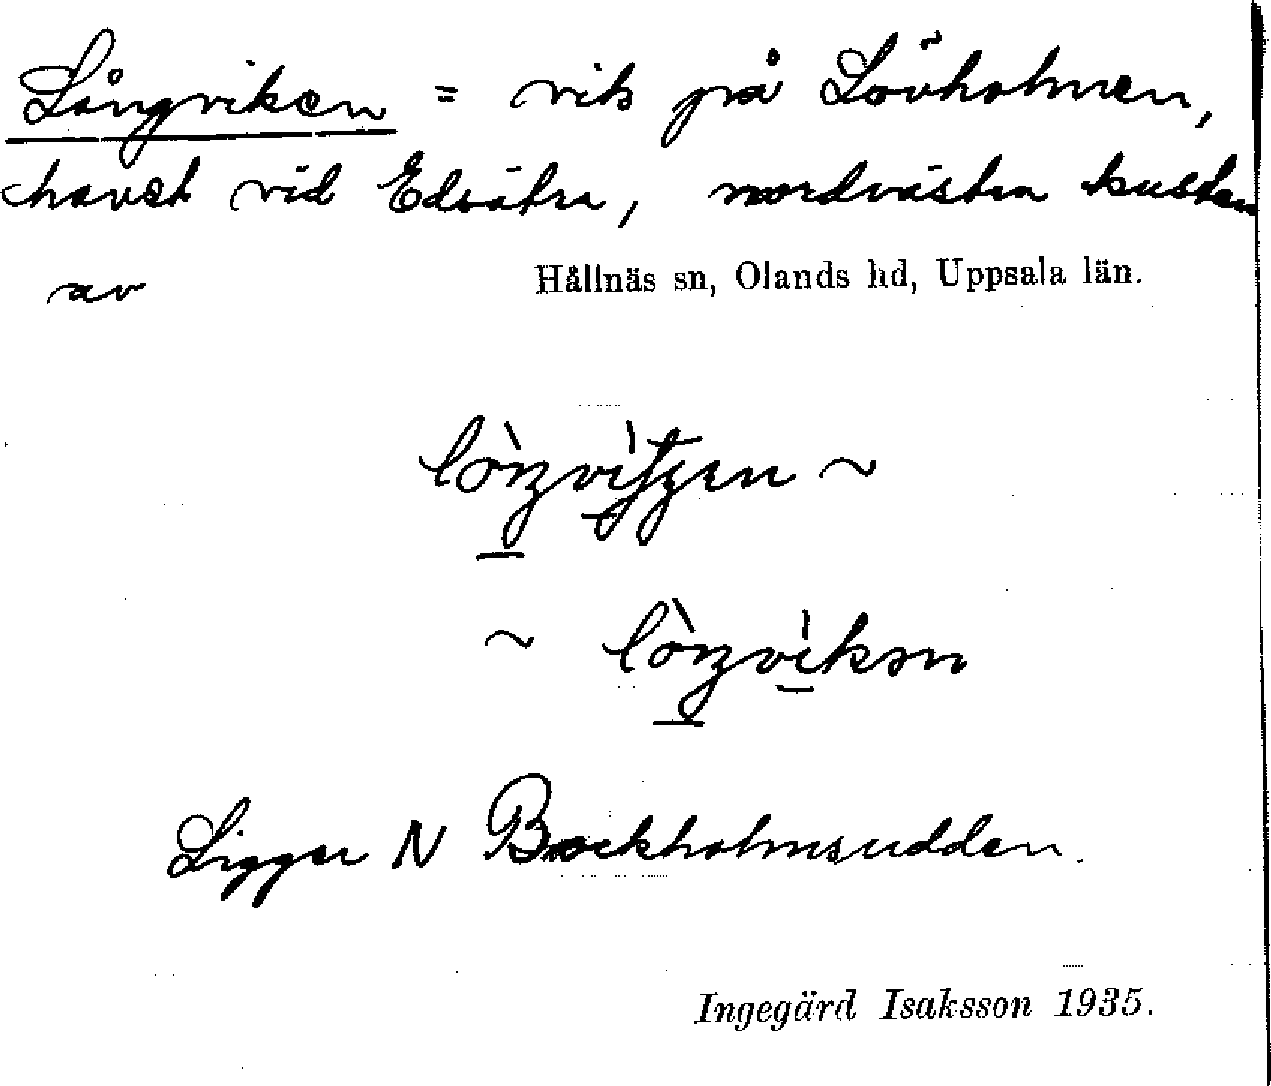 Långviken = vik på Lövholmen,
havet vid Edsätra, nordvästra kusten
av
Hållnäs sn, Olands hd, Uppsala län.
~
~
Ligger N Bockholmsudden.
Ingegärd Isaksson 1935.